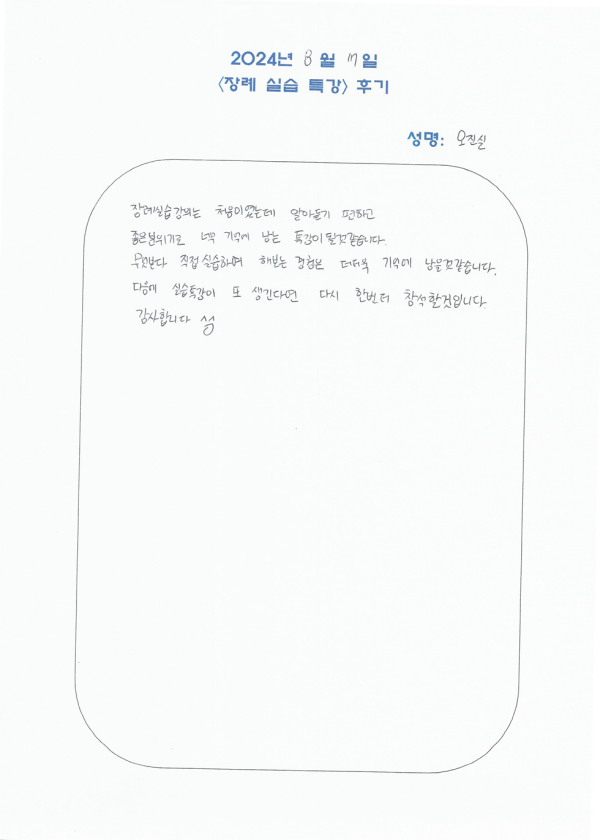 2024년 8월 17일
<장례 실습 특강> 후기
성명: 오진실
장례실습강의는 처음이었는데 알아듣기 편하고
좋은분위기로 너무 기억에 남는 특강이 될것같습니다.
무엇보다 직접 실습하며 해보는 경험은 더더욱 기억에 남을것같습니다.
다음에 실습특강이 또 생긴다면 다시 한번더 참석할것입니다.
감사합니다